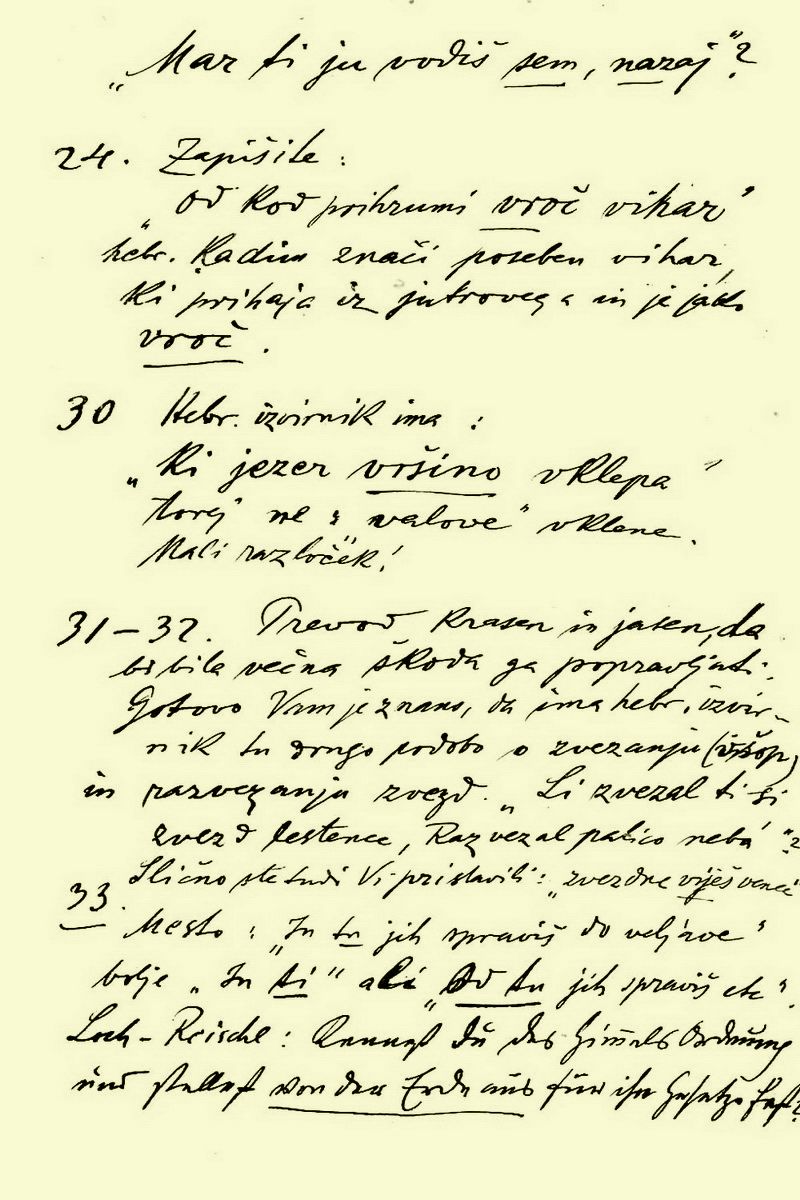 „Mar ti ju vodiš sem, nazaj"?
24. Zapišite:
„Od kod prihrumi vroč vihar"
hebr. Kadim znači poseben vihar,
ki prihaja iz jutrovega in je jako
vroč.
30 Hebr. izvirnik ima:
„Ki jezer vršino vklepa"
torej ne „valove" vklene.
Mali razloček!
31–32. Prevod krasen in jasen, da
bi bila večna škoda ga popravljati.
Gotovo Vam je znano, da ima hebr. izvir-
nik tu drugo podobo o zvezanju
in razvezanju zvezd. „Li zvezal ti si
zvezd lestence, Razvezal palico neba"?
Slično ste tudi Vi pristavili: „zvezdne viješ vence"
33. Mesto: „In tu jih spraviš do veljave"
bolje „In ti" ali „Od tu jih spraviš etc".
Loch-Reischl: Kennst du des Himmels Ordnung
und stellest von der Erde aus für ihn Gesetze fest?